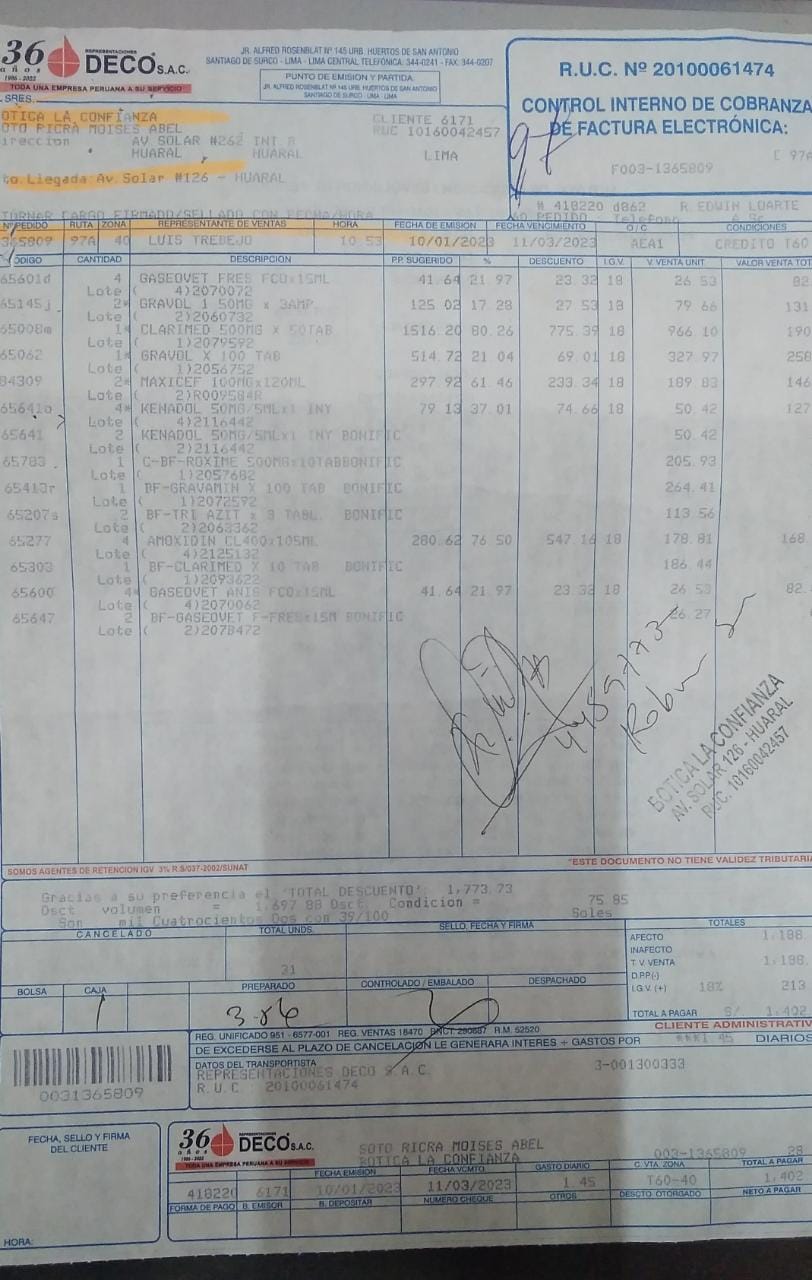 36 años
1986-2022
REPRESENTACIONES
DECO S.A.C.
TODA UNA EMPRESA PERUANA A SU SERVICIO
JR. ALFRED ROSENBLAT Nº 145 URB. HUERTOS DE SAN ANTONIO
SANTIAGO DE SURCO - LIMA - LIMA CENTRAL TELEFÓNICA: 344-0241 - FAX: 344-0207
PUNTO DE EMISION Y PARTIDA:
JR. ALFRED ROSENBLAT Nº 145 URB. HUERTOS DE SAN ANTONIO
SANTIAGO DE SURCO - LIMA - LIMA
R.U.C. Nº 20100061474
CONTROL INTERNO DE COBRANZA
DE FACTURA ELECTRÓNICA:
F003-1365809 [ 97A
SRES.
OTICA LA CONFIANZA CLIENTE 6171
OTO RICRA MOISES ABEL RUC 10160042457
ireccion AV SOLAR #262 INT R
HUARAL HUARAL LIMA
to.Llegada:Av.Solar #126 - HUARAL
# 418220 d862 R.EDWIN LOARTE
TORNAR CARGO FIRMADO/SELLADO CON FECHA/HORA NO PEDIDO Telefono
NºPEDIDO RUTA ZONA REPRESENTANTE DE VENTAS HORA FECHA DE EMISION FECHA VENCIMIENTO O/C CONDICIONES
365809 97A 40 LUIS TREBEJO 10 53 10/01/2023 11/03/2023 AEA1 CREDITO T60
CÓDIGO CANTIDAD DESCRIPCION P.P. SUGERIDO % DESCUENTO I.G.V. V.VENTA UNIT VALOR VENTA TOT
65601d 4 GASEOVET FRES FCOx15ML 41.64 21.97 23.32 18 26 53 82
Lote ( 4)2070072
65145j 2* GRAVOL 1 50MG x 3AMP. 125 02 17 28 27.53 18 79 66 131
Lote ( 2)2060732
65008m 1* CLARIMED 500MG X 50TAB 1516.20 80.26 775.39 18 966 10 190
Lote ( 1)2079592
65062 1* GRAVOL X 100 TAB 514.72 21 04 69.01 18 327.97 258
Lote ( 1)2056752
84309 2* MAXICEF 100MGx120ML 297.92 61.46 233.34 18 189 83 146
Lote ( 2)R009584R
65641o 4* KENADOL 50MG/5MLx1 INY 79 13 37.01 74.66 18 50.42 127
Lote ( 4)2116442
65641 2 KENADOL 50MG/5MLx1 INY BONIFIC 50.42
Lote ( 2)2116442
65783 1 C-BF-ROXIME 500MGx10TABBONIFIC 205.93
Lote ( 1)2057682
65413r 1 BF-GRAVAMIN X 100 TAB BONIFIC 264.41
Lote ( 1)2072592
65207s 2 BF-TRI AZIT x 3 TABL. BONIFIC 113.56
Lote ( 2)2063362
65277 4 AMOXIDIN CL400x105ML 280.62 76 50 547.16 18 178.81 168
Lote ( 4)2125132
65303 1 BF-CLARIMED X 10 TAB BONIFIC 186.44
Lote ( 1)2093622
65600 4* GASEOVET ANIS FCOx15ML 41.64 21.97 23.32 18 26 53 82
Lote ( 4)2070062
65647 2 BF-GASEOVET F-FRESx15M BONIFIC 26.27
Lote ( 2)2078472
BOTICA LA CONFIANZA
AV. SOLAR 126 - HUARAL
RUC. 10160042457
SOMOS AGENTES DE RETENCION IGV 3% R.S/037-2002/SUNAT
"ESTE DOCUMENTO NO TIENE VALIDEZ TRIBUTARI
Gracias a su preferencia el 'TOTAL DESCUENTO' 1,773.73
Dsct volumen = 1,697 88 Dsct. Condicion = 75.85
Son mil Cuatrocientos Dos con 39/100 Soles
CANCELADO TOTAL UNDS. SELLO, FECHA Y FIRMA TOTALES
31
AFECTO 1,188.
INAFECTO
T.V. VENTA 1,188.
D.P.P.(-)
I.G.V. (+) 18% 213
TOTAL A PAGAR S/ 1,402
BOLSA CAJA PREPARADO CONTROLADO / EMBALADO DESPACHADO
1 3-86
CLIENTE ADMINISTRATIV
REG. UNIFICADO 951 - 6577-001 REG. VENTAS 18470 PNCT. 290887 R.M. 52520
DE EXCEDERSE AL PLAZO DE CANCELACION LE GENERARA INTERES + GASTOS POR DIARIOS
DATOS DEL TRANSPORTISTA 3-001300333
REPRESENTACIONES DECO S.A.C.
R.U.C. 20100061474
0031365809
FECHA, SELLO Y FIRMA
DEL CLIENTE
HORA:
36 años
1986-2022
REPRESENTACIONES
DECO S.A.C.
TODA UNA EMPRESA PERUANA A SU SERVICIO
SOTO RICRA MOISES ABEL
BOTICA LA CONFIANZA 003-1365809 28
FECHA EMISIÓN FECHA VCMTO GASTO DIARIO C. VTA. ZONA TOTAL A PAGAR
418220 6171 10/01/2023 11/03/2023 1.45 T60-40 1,402
FORMA DE PAGO B. EMISOR B. DEPOSITAR NUMERO CHEQUE OTROS DESCTO OTORGADO NETO A PAGAR